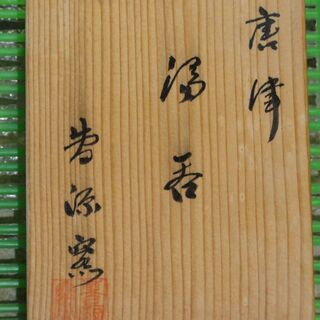 唐津
湯呑
曹源窯